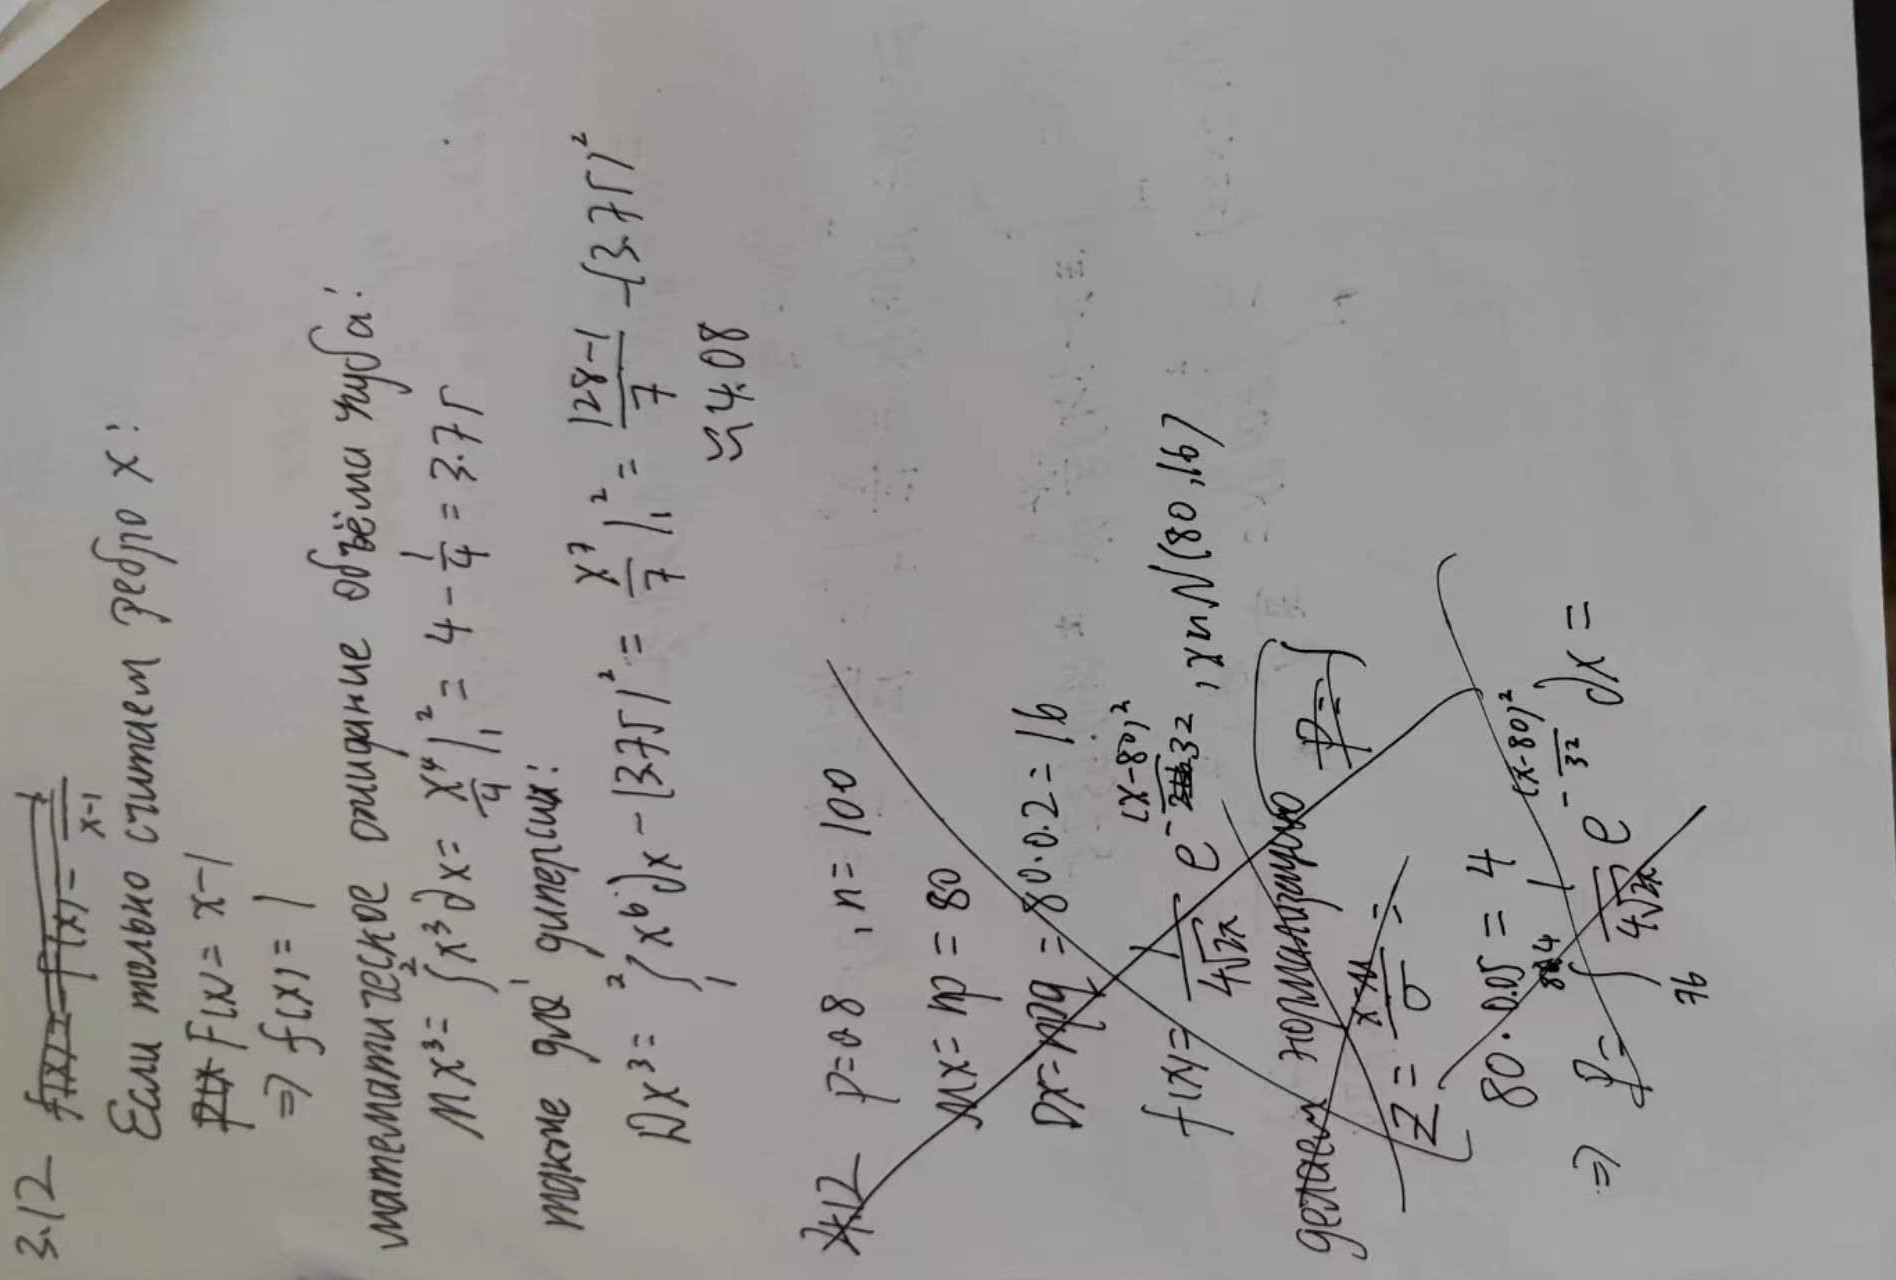 3.12 f(x) = f(x) - 1/(x-1)
Если только считаем ребро x:
F(x) = x-1
⇒ f(x) = 1
математическое ожидание объёма куба:
Mx³ = ∫₁² x³ dx = x⁴/4 |₁² = 4 - 1/4 = 3.75
также для диперсии:
Dx³ = ∫₁² x⁶ dx - (3.75)² = x⁷/7 |₁² = (128-1)/7 - (3.75)²
≈ 4.08
4.12 p=0.8 , n=100
Mx = np = 80
Dx = npq = 80·0.2 = 16
f(x) = 1/(4√2π) e^(-(x-80)²/32) , x~N(80,16)
делаем нормализацию P=∫
z = (x-м)/σ =
80·0.05 = 4
⇒ P = ∫₇₆⁸⁴ 1/(4√2π) e^(-(x-80)²/32) dx =